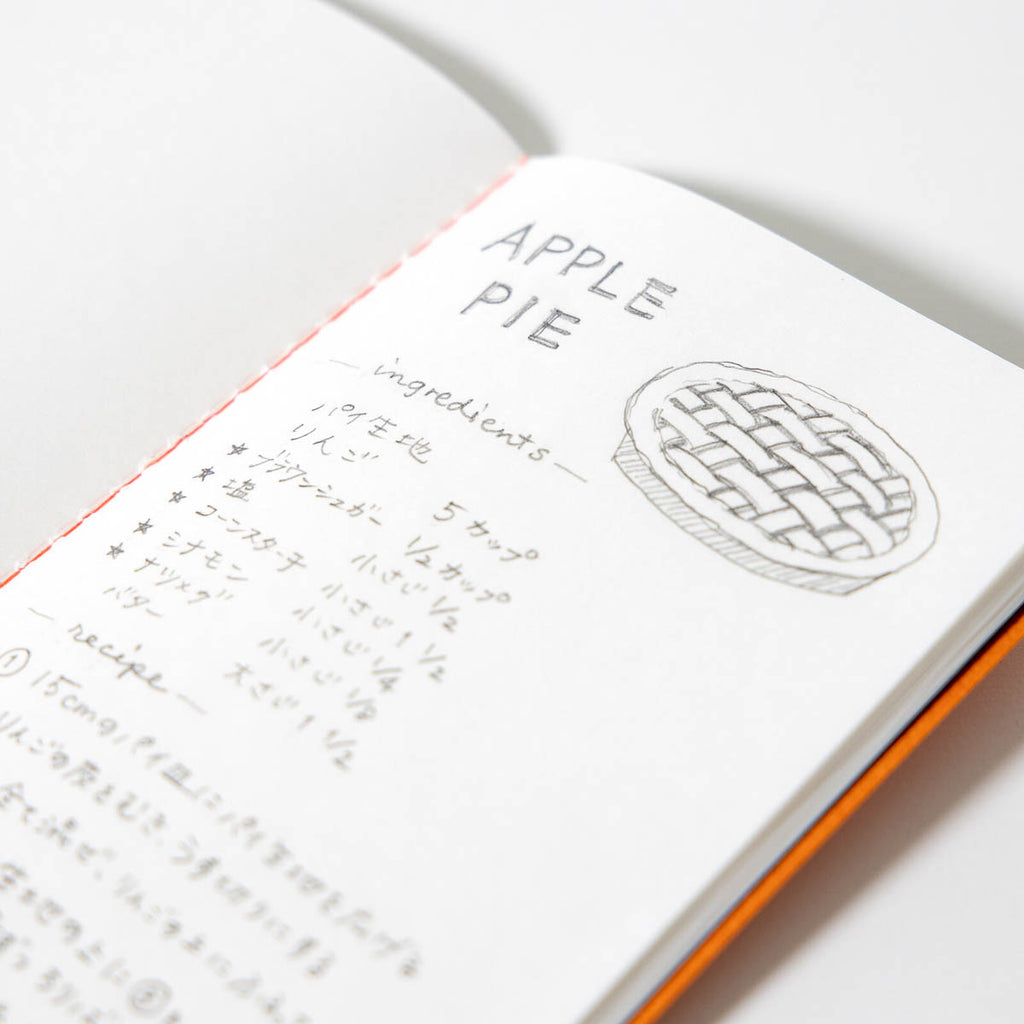 APPLE
PIE
— ingredients —
パイ生地
りんご 5カップ
★ ブラウンシュガー 1/2カップ
★ 塩 小さじ 1/2
★ コーンスターチ 小さじ 1 1/2
★ シナモン 小さじ 1/4
★ ナツメグ 小さじ 1/8
バター 大さじ 1 1/2
— recipe —
① 15cmのパイ皿にパイ生地を広げる
りんごの皮をむき、うす切りにする
全て混ぜ、りんごの上に
の上に